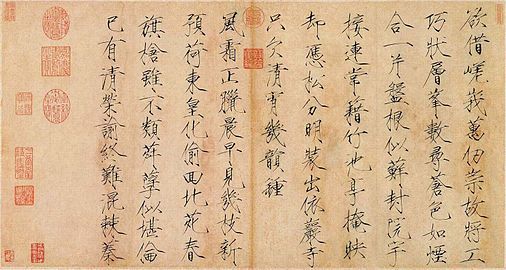 欲借嵯峩萬仞崇故將工
巧狀層峯數尋蒼色如煙
合一片盤根似蘚封院宇
接連常籍竹池亭掩映
却應松分明裝出依巖寺
只欠清宵幾韻鍾
風霜正臘晨早見幾枝新
預荷東皇化偷回北苑春
旗槍雖不類荈蘖似堪倫
已有清榮諭終難混棘蓁